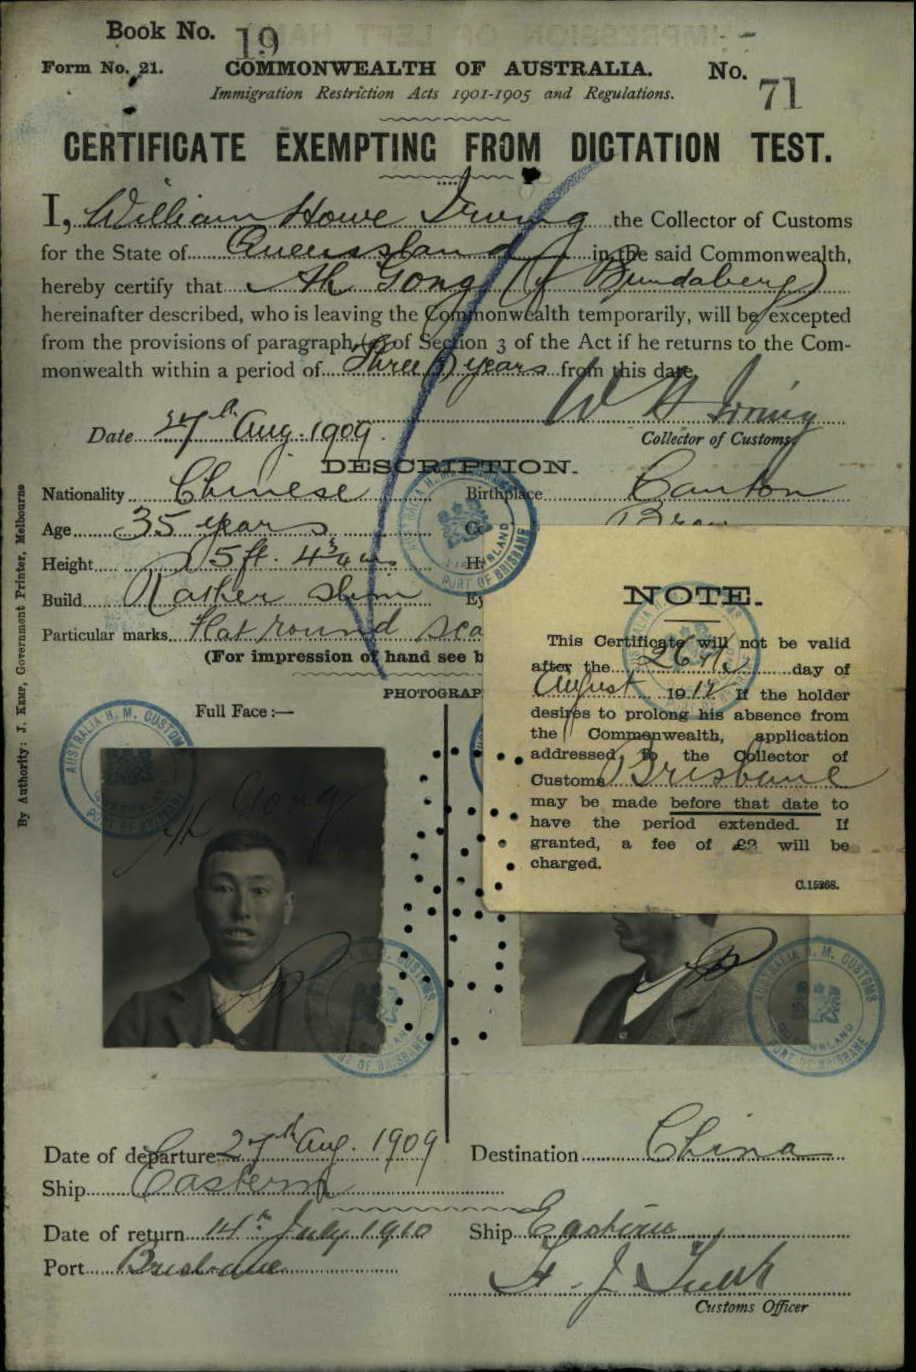 Book No. 19
Form No. 21. COMMONWEALTH OF AUSTRALIA. No. 71
Immigration Restriction Acts 1901-1905 and Regulations.
CERTIFICATE EXEMPTING FROM DICTATION TEST.
I, William Howe Irving the Collector of Customs
for the State of Queensland in the said Commonwealth,
hereby certify that Ah Gong (of Bundaberg)
hereinafter described, who is leaving the Commonwealth temporarily, will be excepted
from the provisions of paragraph (a) of Section 3 of the Act if he returns to the Com-
monwealth within a period of Three (3) years from this date.
W H Irving
Date 27th Aug. 1909. Collector of Customs.
DESCRIPTION.
Nationality Chinese Birthplace Canton
Age 35 years
Height 5 ft. 4¾ ins
Build Rather slim
Particular marks Flat round
(For impression of hand see b
PHOTOGRAP
Full Face:—
Ah Gong
NOTE.
This Certificate will not be valid
after the 26th day of
August 1912 If the holder
desires to prolong his absence from
the Commonwealth, application
addressed to the Collector of
Customs Brisbane
may be made before that date to
have the period extended. If
granted, a fee of £2 will be
charged.
C.15268.
AUSTRALIA H. M. CUSTOMS
QUEENSLAND
PORT OF BRISBANE
Date of departure 27th Aug. 1909 Destination China
Ship Eastern
Date of return 14th July 1910 Ship Eastern
Port Brisbane
Customs Officer
By Authority: J. Kemp, Government Printer, Melbourne